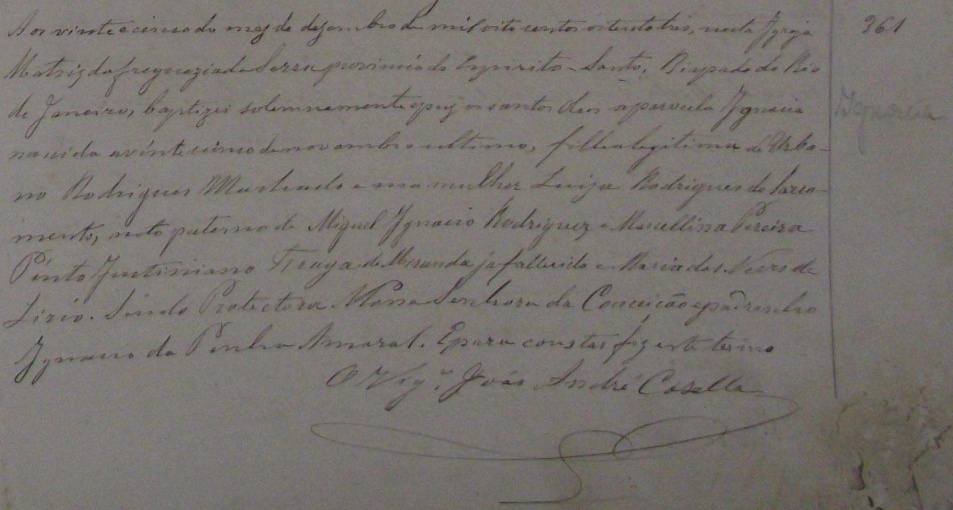 Aos vinte e cinco do mez de dezembro de mil oito centos oitenta tres, nesta Igreja
Matriz da freguezia da Serra provincia do Espirito-Santo, Bispado do Rio
de Janeiro, baptizei solemnemente e puz os santos oleos a parvula Ignacia
nascida a vinte e cinco de novembro ultimo, filha legitima de Urba-
no Rodrigues Machado e sua mulher Luiza Rodrigues do Sacra-
mento, neto paterno de Miguel Ignacio Rodriguez e Marcellina Pereira
Pinto Justiniano Fraga de Miranda ja fallecido e Maria das Neves de
Lirio. Sendo Protectora Nossa Senhora da Conceição e padrinho
Ignacio da Penha Amaral. E para constar fiz este termo
O Vigr.º João André Casella
361
Ignacia